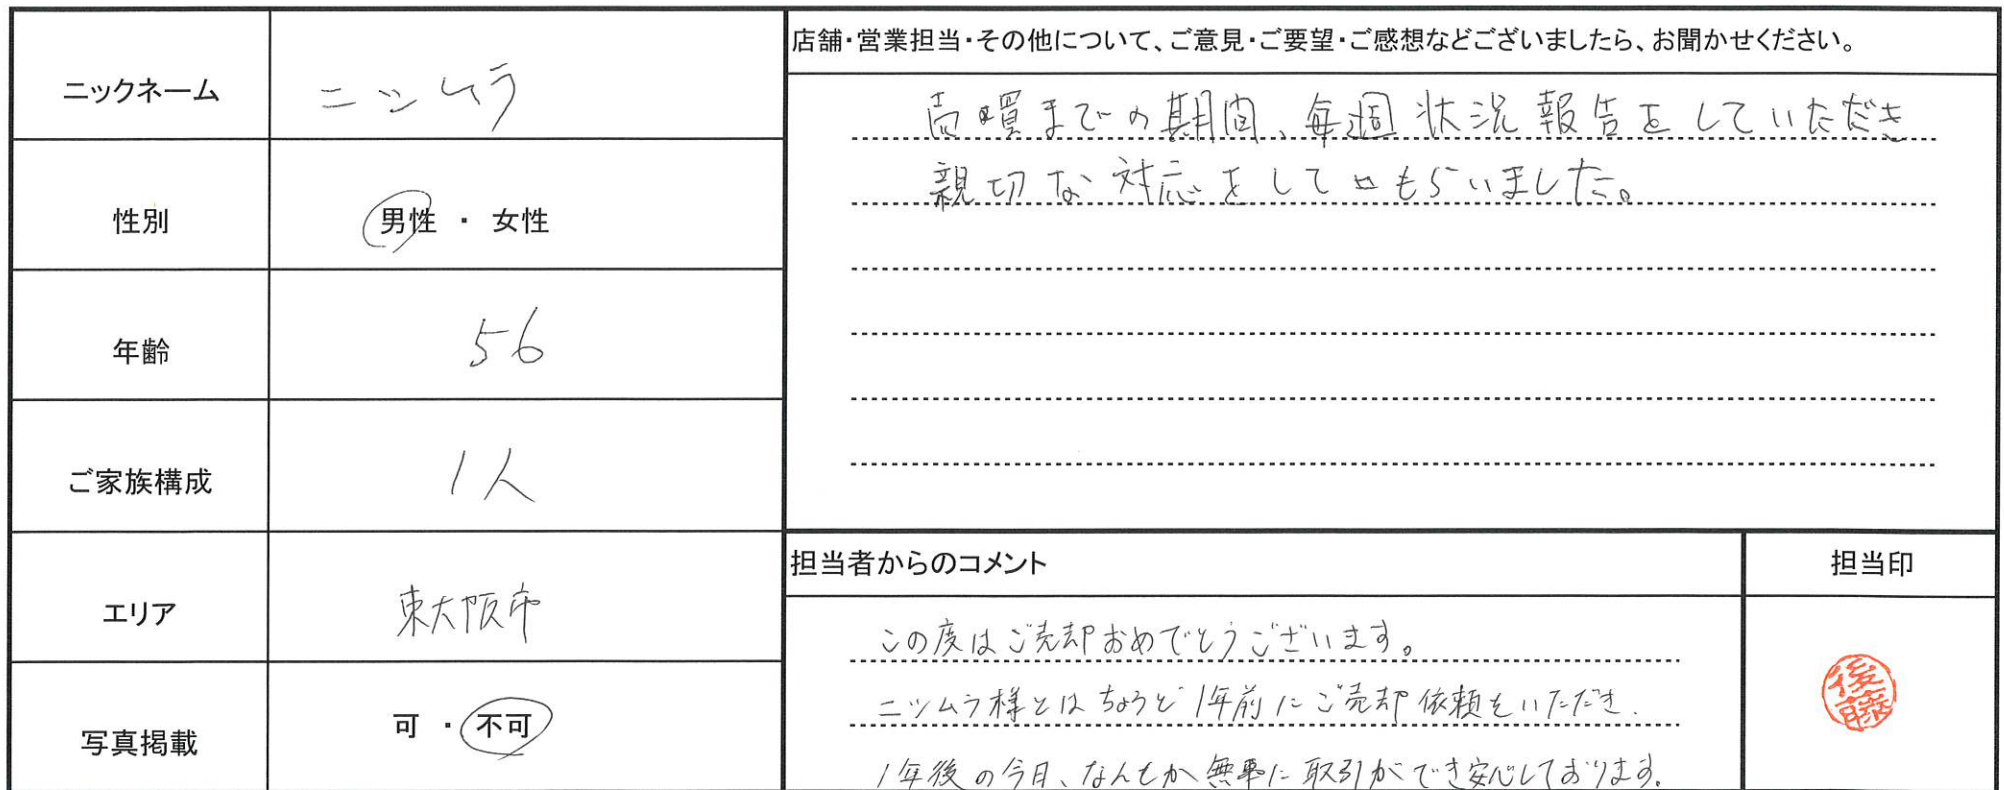 ニックネーム
ニツムラ
性別
男性 ・ 女性
年齢
56
ご家族構成
1人
エリア
東大阪市
写真掲載
可 ・ 不可
店舗・営業担当・その他について、ご意見・ご要望・ご感想などございましたら、お聞かせください。
売買までの期間、毎週状況報告をしていただき
親切な対応をしてもらいました。
担当者からのコメント
この度はご売却おめでとうございます。
ニツムラ様とはちょうど1年前にご売却依頼をいただき、
1年後の今日、なんとか無事に取引ができ安心しております。
担当印
後藤